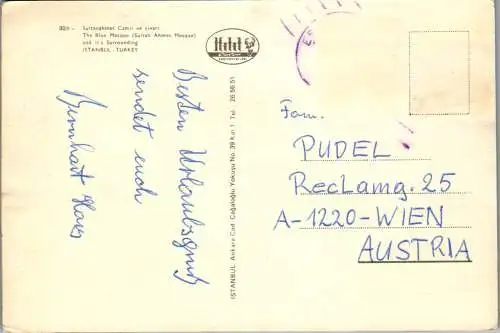 Sultanahmet Camii ve civarı
The Blue Mosque (Sultan Ahmet Mosque)
and it's Surrounding
ISTANBUL - TURKEY
Besten Urlaubsgruß
sendet euch
ISTANBUL Ankara Cad. Cağaloğlu Yokuşu No. 39 Kat 1 Tel: 26 56 51
Fam.
PUDEL
Reclamg. 25
A-1220-WIEN
AUSTRIA